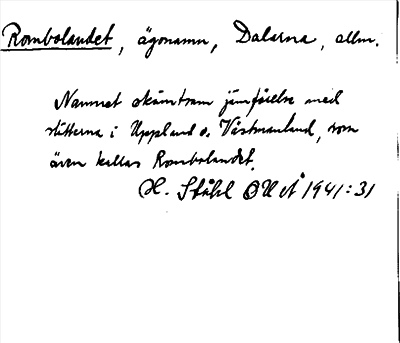 Rombolandet, ägonamn, Dalarna, allm.
Namnet skämtsam jämförelse med
slätterna i Uppland o. Västmanland, som
även kallas Rombolandet.
H. Ståhl OUÅ 1941:31